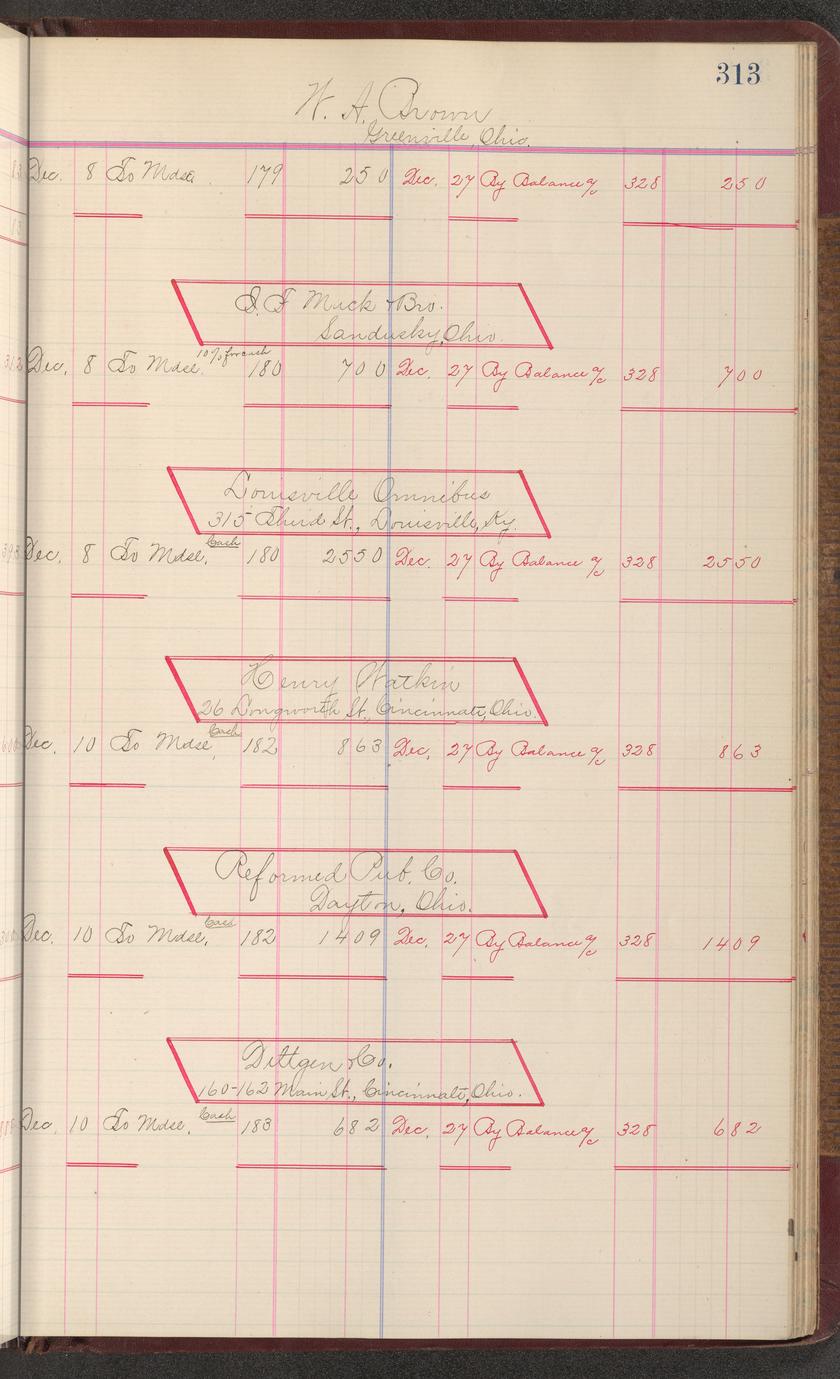 313
W. A. Brown
Greenville, Ohio.
Dec. 8 To Mdse 179 2 5 0 Dec. 27 By Balance a/c 328 2 5 0
& Bro.
Sandusky, Ohio.
10% for cash
Dec. 8 To Mdse. 180 7 0 0 Dec. 27 By Balance a/c 328 7 0 0
Louisville Omnibus
315 Third St., Louisville, Ky.
Cash
Dec. 8 To Mdse. 180 25 5 0 Dec. 27 By Balance a/c 328 25 5 0
Henry Watkin
26 Longworth St., Cincinnati, Ohio.
Cash
Dec. 10 To Mdse, 182 8 6 3 Dec. 27 By Balance a/c 328 8 6 3
Reformed Pub. Co.
Dayton, Ohio.
Cash
Dec. 10 To Mdse. 182 14 0 9 Dec. 27 By Balance a/c 328 14 0 9
& Co.
160-162 Main St., Cincinnati, Ohio.
Cash
Dec. 10 To Mdse. 183 6 8 2 Dec. 27 By Balance a/c 328 6 8 2